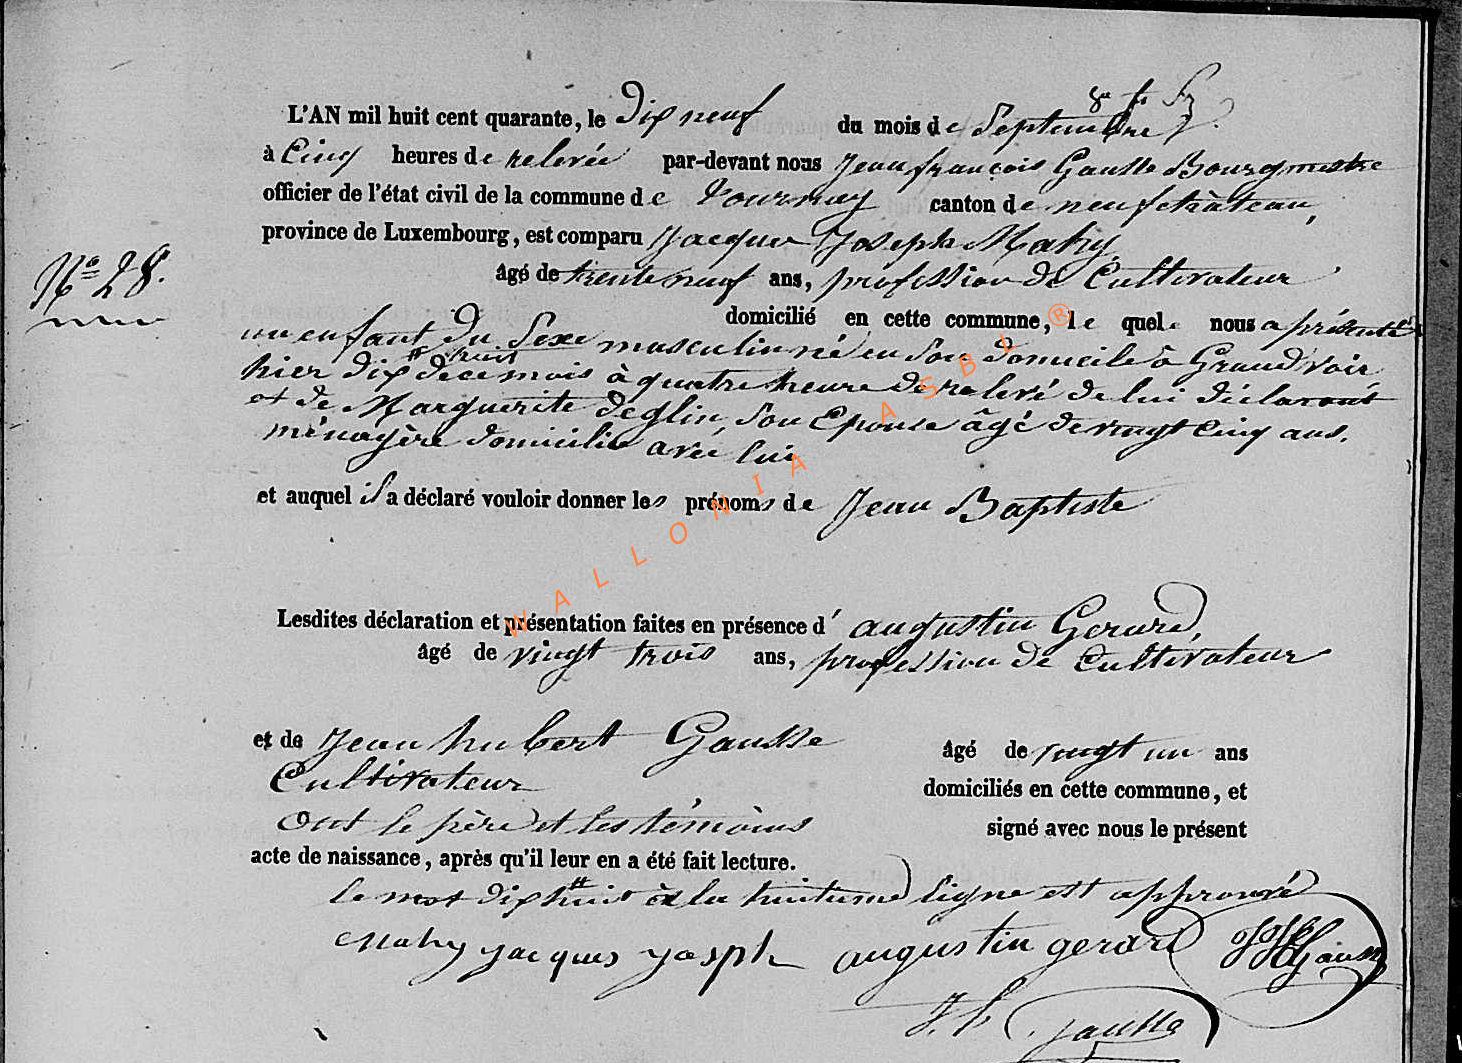 L'AN mil huit cent quarante, le Dix neuf du mois de Septembre
à Cinq heures de relevée par-devant nous Jean françois Gausse Bourgmestre
officier de l'état civil de la commune de tournay canton de neufchâteau,
province de Luxembourg, est comparu Jacques Joseph Mahy
âgé de trente neuf ans, profession de Cultivateur
N° 28.
domicilié en cette commune, le quel nous a présenté
un enfant du Sexe masculin né en Son domicile à Grandvoir
hier dix huit de ce mois à quatre heure de relevé de lui déclarant
et de Marguerite Deglin, Son Epouse âgé de vingt Cinq ans.
ménagère domicilié avec lui
et auquel il a déclaré vouloir donner les prénoms de Jean Baptiste
Lesdites déclaration et présentation faites en présence d' augustin Gerard,
âgé de vingt trois ans, profession de Cultivateur
et de Jean hubert Gausse âgé de vingt un ans
Cultivateur domiciliés en cette commune, et
Ont le père et les témoins signé avec nous le présent
acte de naissance, après qu'il leur en a été fait lecture.
le mot dix huit à la huitieme ligne est approuvé
Mahy jacques josph augustin gerard JH Gausse
J. f. gausse
WALLONIA ASBL ®